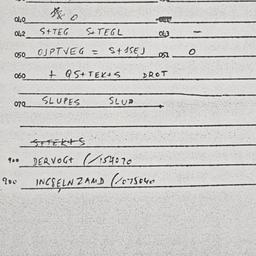 040 0
042 S+TEG S+TEGL 043 -
050 OJPTVEG = S+1SEJ 053 0
060 + QS+TEK+S DROT
070 SLUPES SLUP
S+TEK+S
900 DERVOGT (/154070
900 INGSELNZAND (/075040